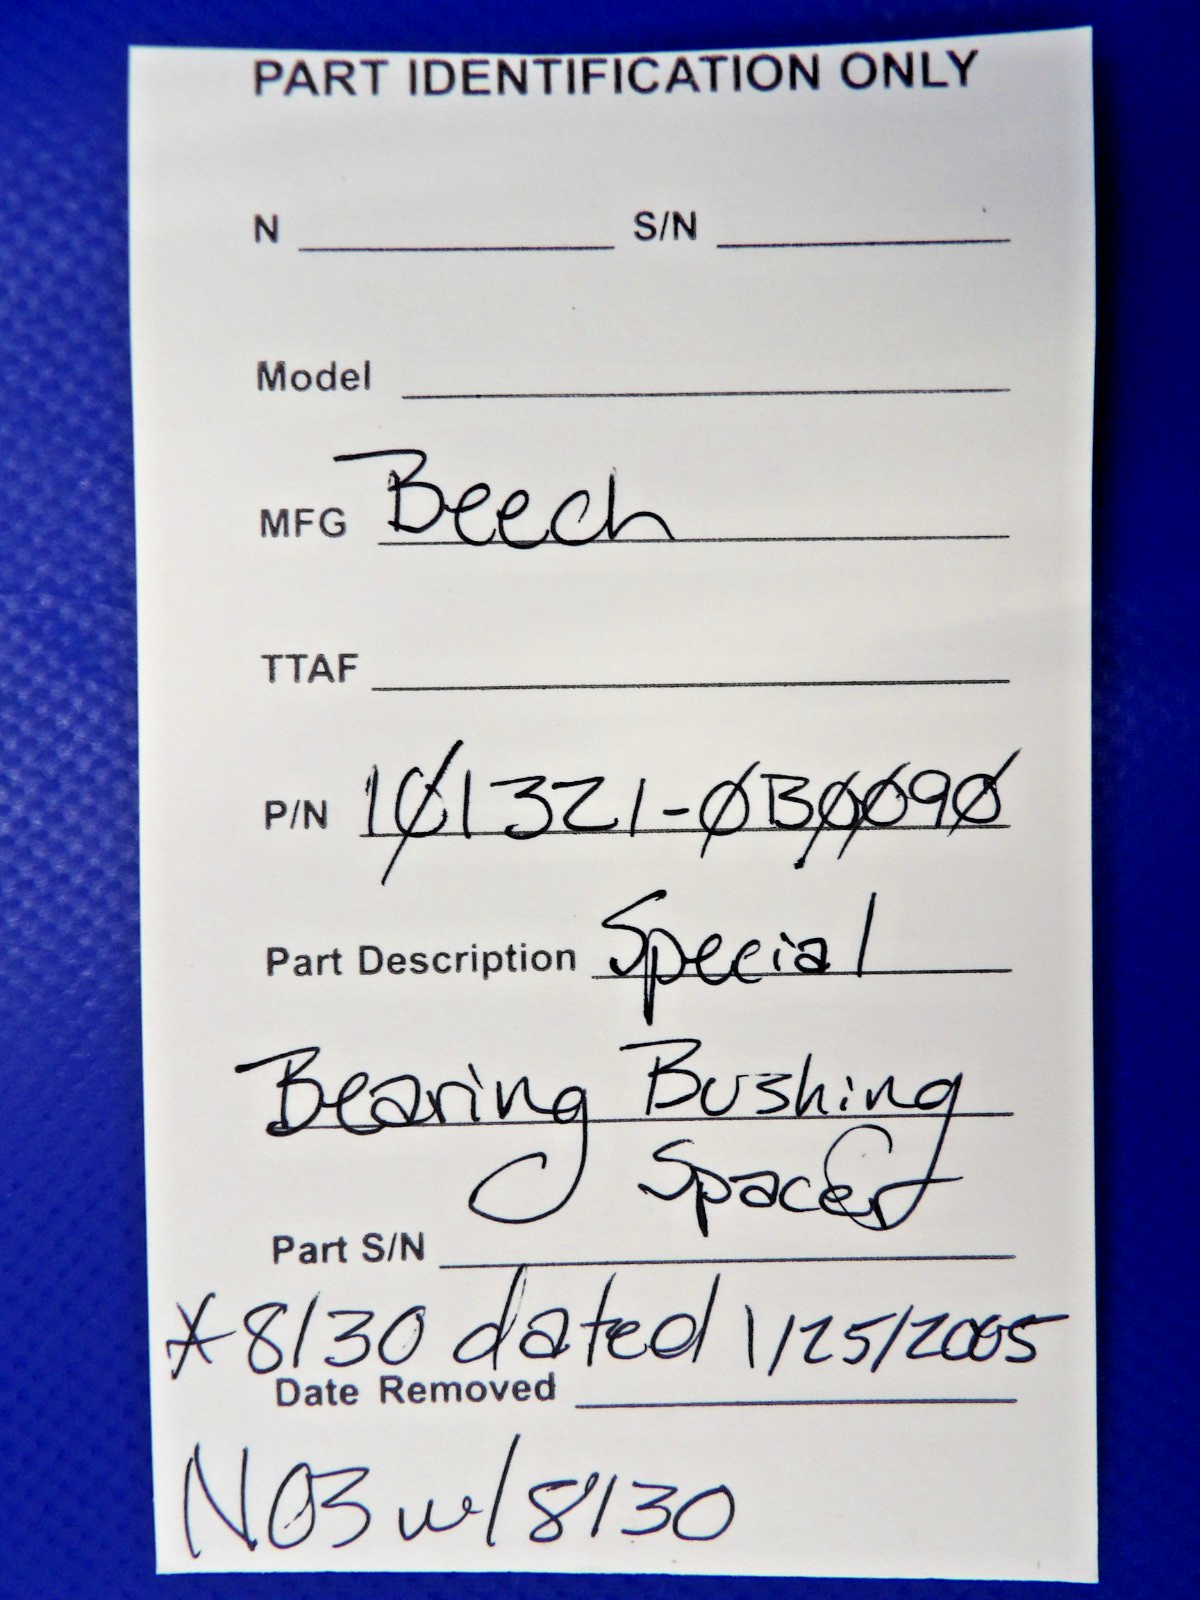 PART IDENTIFICATION ONLY
N S/N
Model
MFG Beech
TTAF
P/N 101321-0B0090
Part Description Special
Bearing Bushing
Spacer
Part S/N
*8130 dated 1/25/2005
Date Removed
NOS w/8130